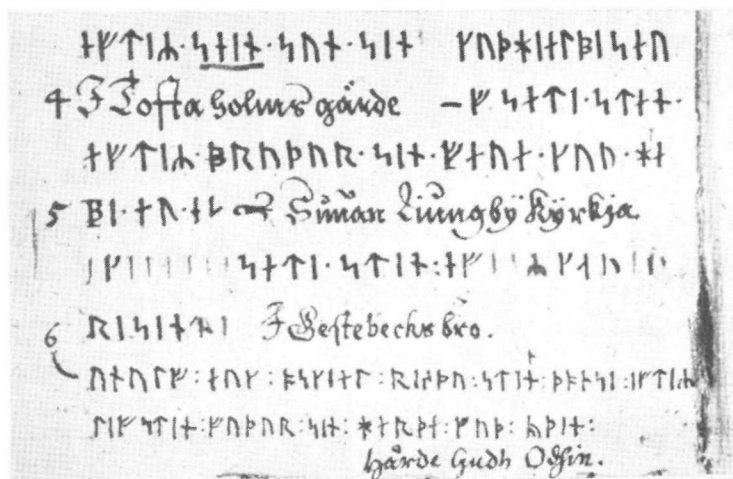 ᛅᚠᛏᛁᛦ · ᛋᚾᛁᚾ · ᛋᚢᚾ · ᛋᛁᚾ ᚴᚢᚦᚼᛁᛅᛚᛒᛁᛋᛅᛚᚢ
4 I Tofta holms gärde – ᚠ · ᛋᛅᛏᛁ · ᛋᛏᛅᚾ ·
ᛅᚠᛏᛁᛦ · ᛒᚱᚢᚦᚢᚱ · ᛋᛁᚾ · ᚴᚢᚢ · ᚼᛅ
5 ᛒᛁ · ᛅᚢ · ᛅᛚ Sunnan Liungby Kyrkia.
ᛋᛅᛏᛁ · ᛋᛏᛁᚾ : ᛅᚠ
6 I Gestebecks bro.
ᚢᛅᚢᛚᚠ : ᛅᚢᚴ : ᚱᛁᛋᚦᚢ : ᛋᛏᛁᚾ : ᚦᛅᚾᛋᛁ : ᛁᚠᛏᛁᛦ
ᛚᛁᚠᛋᛏᛁᚾ : ᚠᚢᚦᚢᚱ : ᛋᛁᚾ : ᚼᛅᚱᚦᛅ : ᚴᚢᚦ : ᚢᚦᛁᚾ :
Hårde Gudh Odhin.